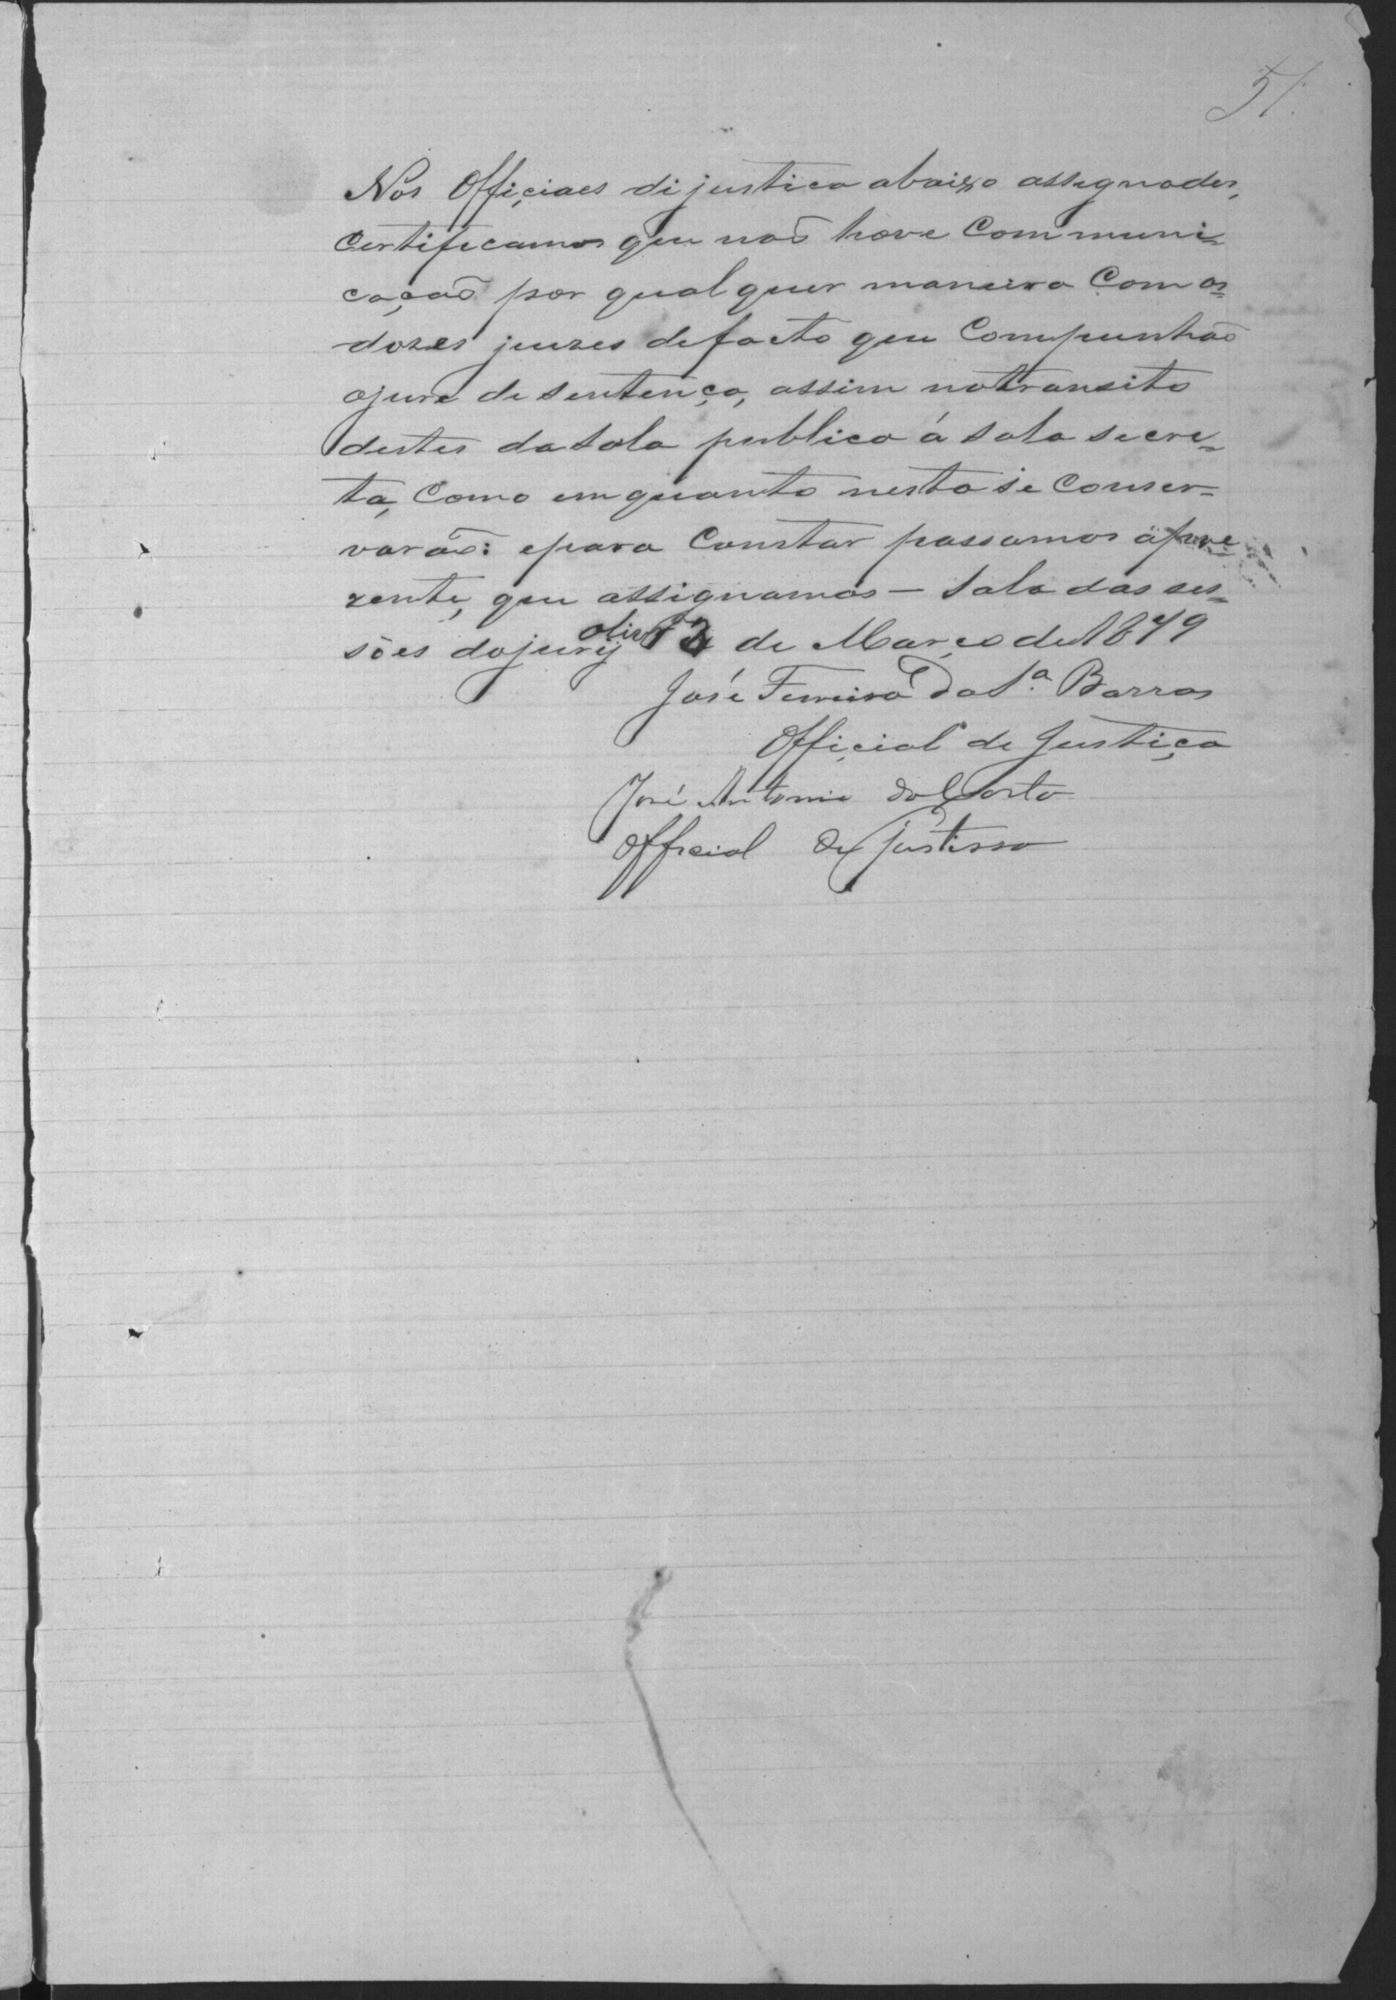 51.
Nós Officiaes di justica abaixo assignados,
Certificamos que naõ hove Communi-
caçaõ por qualquer maneira Com os
dozes juizes defacto que Compunhaõ
ojure de sentença, assim notransito
destes da sala publica á sala secre-
ta, Como emquanto nesta se Conser-
varaõ: epara Constar passamos apre
zente, que assignamos — Sala das ses-
sões dojury 12 de Março de 1879
José Ferreira da S.ª Barros
Official de Justiça
José Antonio da Costa
Official de justissa